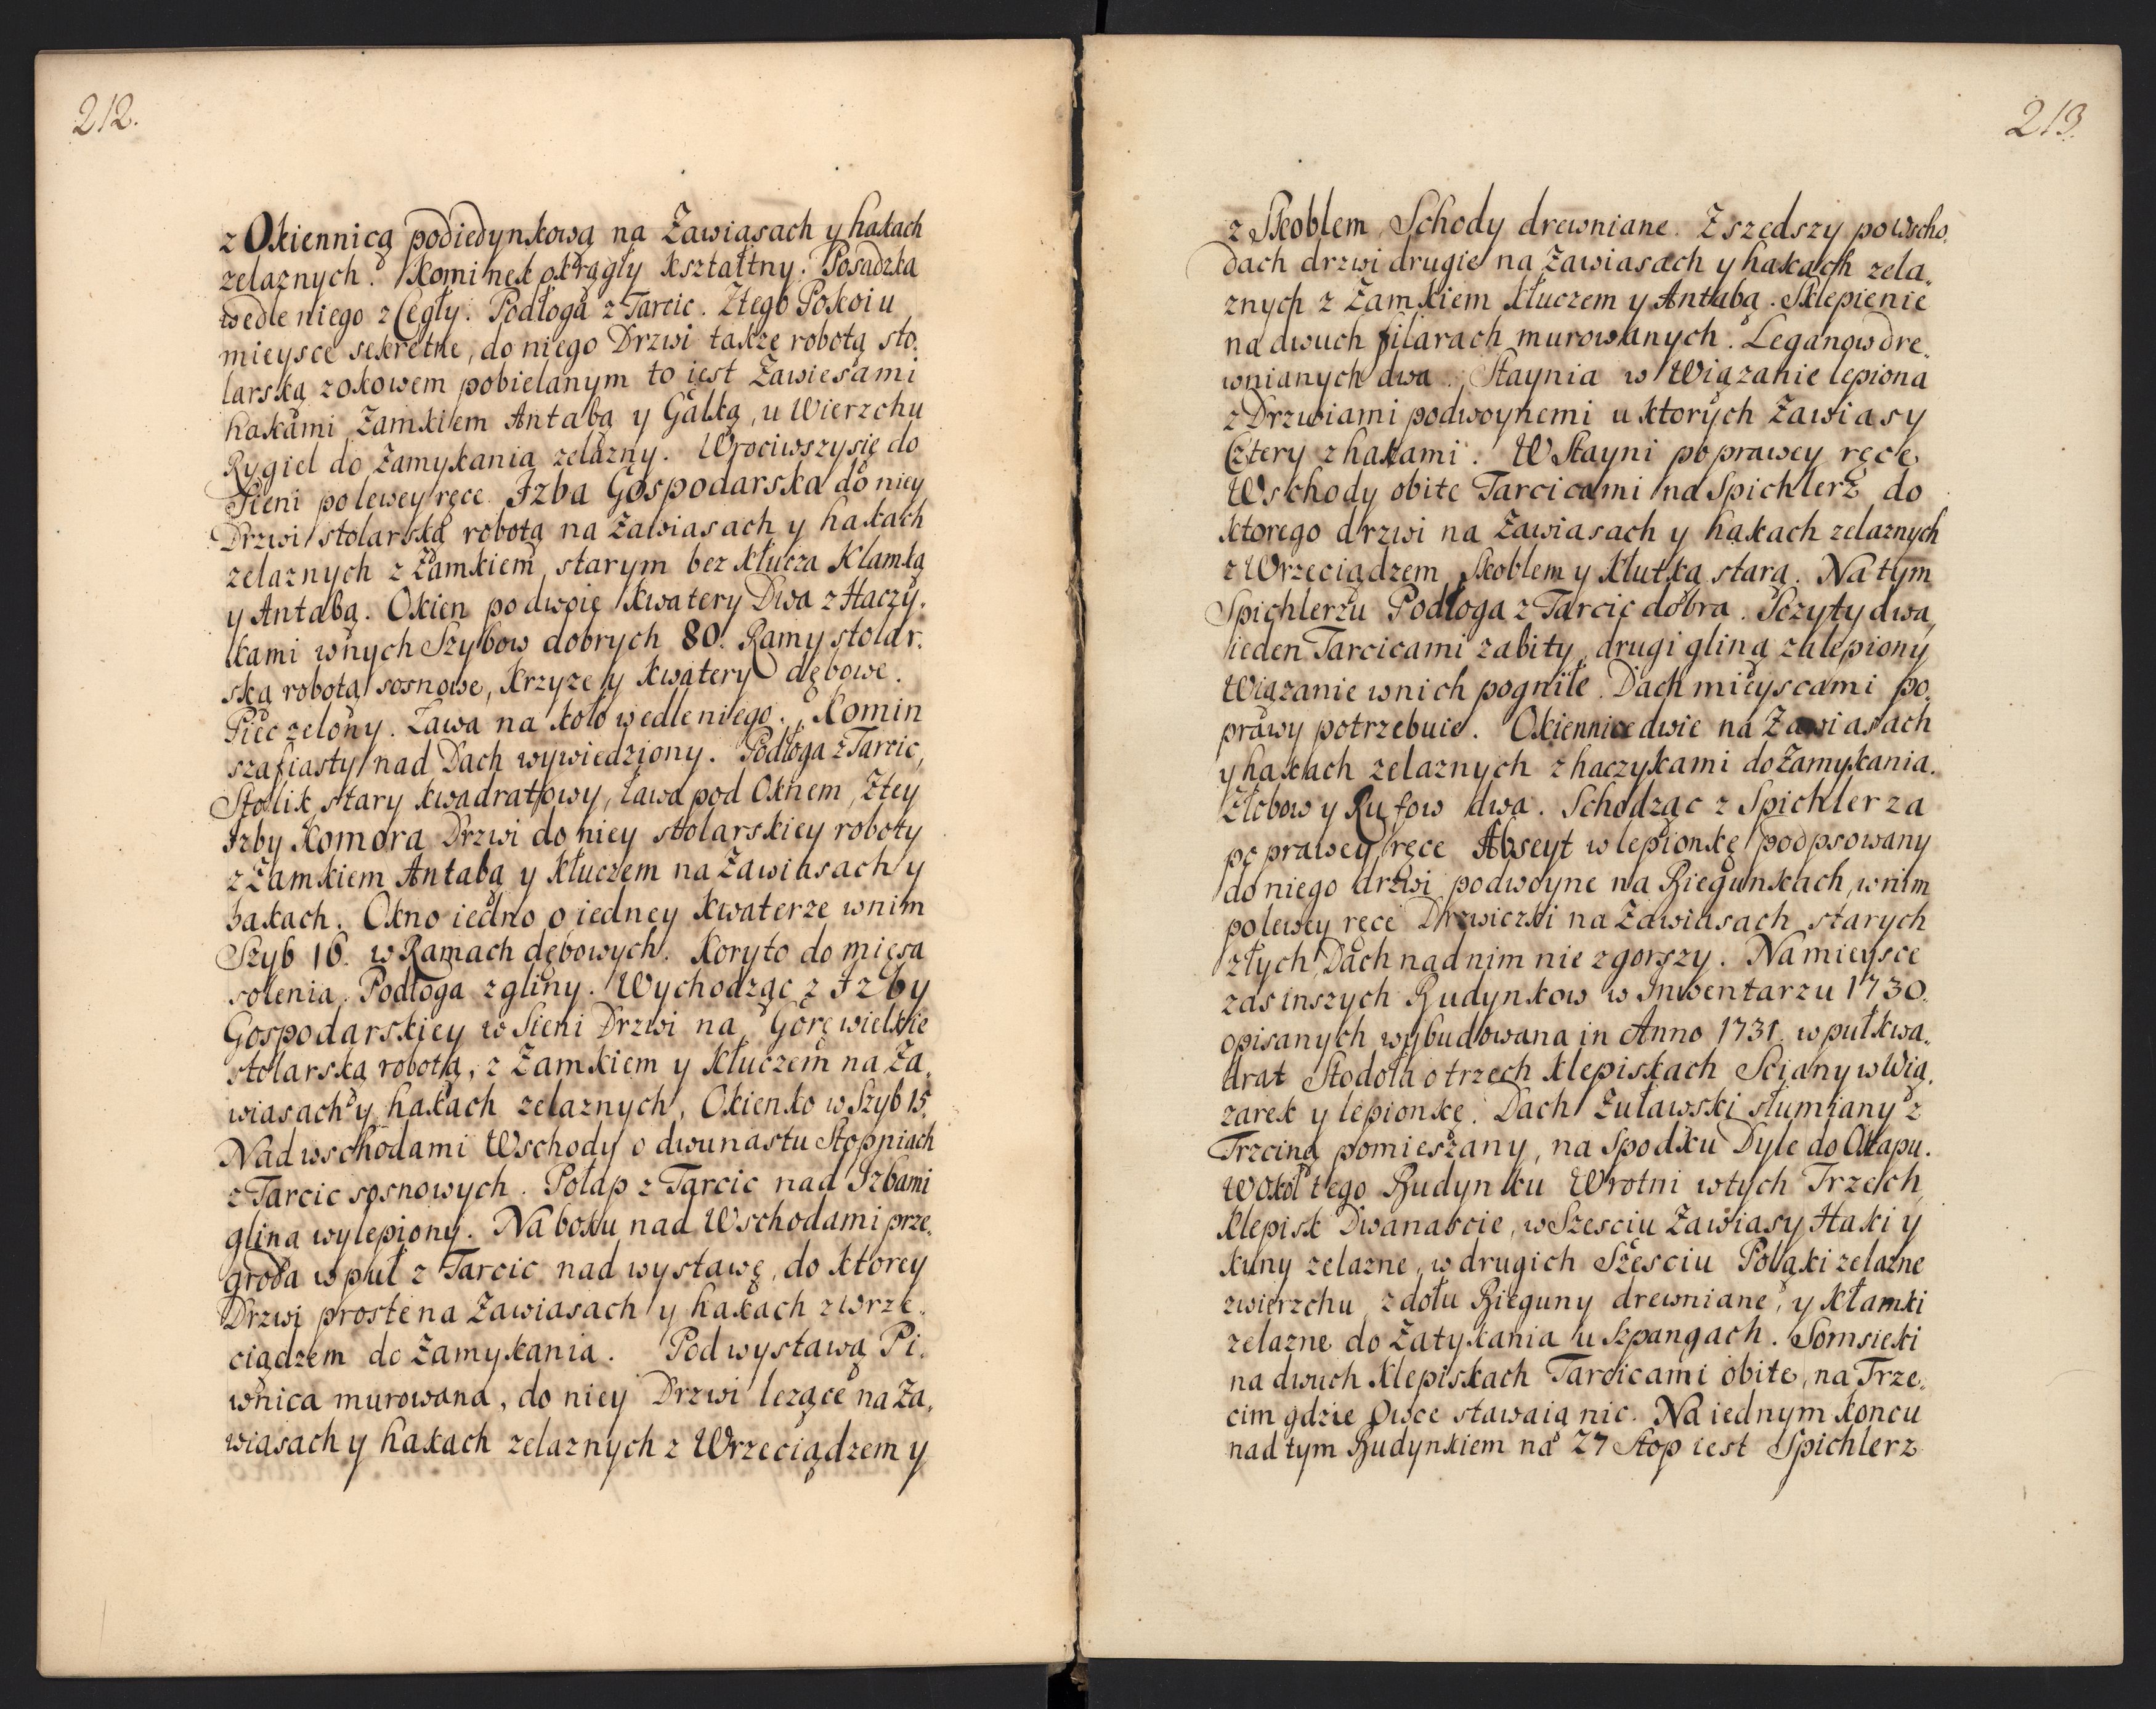 212.
z Okiennicą podiedynkową na Zawiasach y hakach
zelaznych. Kominek okrągły kształtny. Posadzka
wedle niego z Cegły. Podłoga z Tarcic. Ztego Pokoiu
mieysce sekretne, do niego Drzwi także robotą sto„
larską zokowem pobielanym to iest Zawiesami
hakami Zamkiem Antabą y Gałką, u Wierzchu
Rygiel do Zamykania zelazny. Wrociwszysię do
Sieni polewey ręce Izba Gospodarska do niey
Drzwi stolarską robotą na Zawiasach y hakach
zelaznych z Zamkiem starym bez Klucza Klamką
y Antabą. Okien podwoię kwatery Dwa z Haczy„
kami wnych Szybow dobrych 80. Ramy stolar„
ską robotą sosnowe, Krzyze y kwatery dębowe.
Piec zelony. Ława na koło wedle niego. Komin
szafiasty nad Dach wywiedziony. Podłoga z Tarcic,
Stolik stary kwadratowy, ława pod Oknem, Ztey
Izby Komora Drzwi do niey stolarskiey roboty
z Zamkiem Antabą y Kluczem na Zawiasach y
hakach. Okno iedno o iedney kwaterze wnim
Szyb 16. w Ramach dębowych. Koryto do mięsa
solenia. Podłoga z gliny. Wychodząc z Izby
Gospodarskiey w Sieni Drzwi na Gorę wielkie
stolarską robotą, z Zamkiem y Kluczem na Za„
wiasach y hakach zelaznych, Okienko w Szyb 15.
Nad wschodami Wschody o dwunastu Stopniach
z Tarcic sosnowych. Połap z Tarcic nad Izbami
gliną wylepiony. Na boku nad Wschodami prze„
groda w puł z Tarcic nad wystawę, do ktorey
Drzwi proste na Zawiasach y hakach zwrze„
ciądzem do Zamykania. Pod wystawą Pi„
wnica murowana, do niey Drzwi lezące na Za„
wiasach y hakach zelaznych z Wrzeciądzem y
213.
z Skoblem, Schody drewniane. Zszedszy po wscho„
dach drzwi drugie na Zawiasach y hakach zela„
znych z Zamkiem Kluczem y Antabą. Sklepienie
na dwuch filarach murowanych. Leganow dre„
wnianych dwa. Staynia w Wiązanie lepiona
z Drzwiami podwoynemi u ktorych Zawiasy
Cztery z hakami. W Stayni po prawey ręce
Wschody obite Tarcicami na Spichlerz do
ktorego drzwi na Zawiasach y hakach zelaznych
z Wrzeciądzem, Skoblem y Kłutką starą. Na tym
Spichlerzu Podłoga z Tarcic dobra. Sczyty dwa,
ieden Tarcicami zabity, drugi gliną zalepiony
Wiązanie wnich pogniłe. Dach mieyscami po„
prawy potrzebuie. Okiennice dwie na Zawiasach
y hakach zelaznych z haczykami do Zamykania.
Złobow y Rufow dwa. Schodząc z Spichlerza
po prawey ręce Abseyt w lepionkę podpsowany
do niego drzwi podwoyne na Biegunkach, wnim
polewey ręce Drzwiczki na Zawiasach starych
złych Dach nad nim nie zgorszy. Na mieysce
zas inszych Budynkow w Inwentarzu 1730.
opisanych wybudowana in Anno 1731. w puł kwa„
drat Stodoła o trzech klepiskach Sciany w Wią„
zarek y lepionkę. Dach Zuławski słumiany z
Trzciną pomieszany, na Spodku Dyle do Okapu.
Wokoł tego Budynku Wrotni wtych Trzech
klepisk Dwanascie, w Szesciu Zawiasy Haki y
kuny zelazne, w drugich Szesciu Polaki zelazne
zwierzchu, z dołu Bieguny drewniane, y Klamki
zelazne do Zatykania u Szpangach. Somsieki
na dwuch klepiskach Tarcicami obite, na Trze„
cim gdzie Owce stawaią nic. Na iednym koncu
nad tym Budynkiem na 27 Stop iest Spichlerz